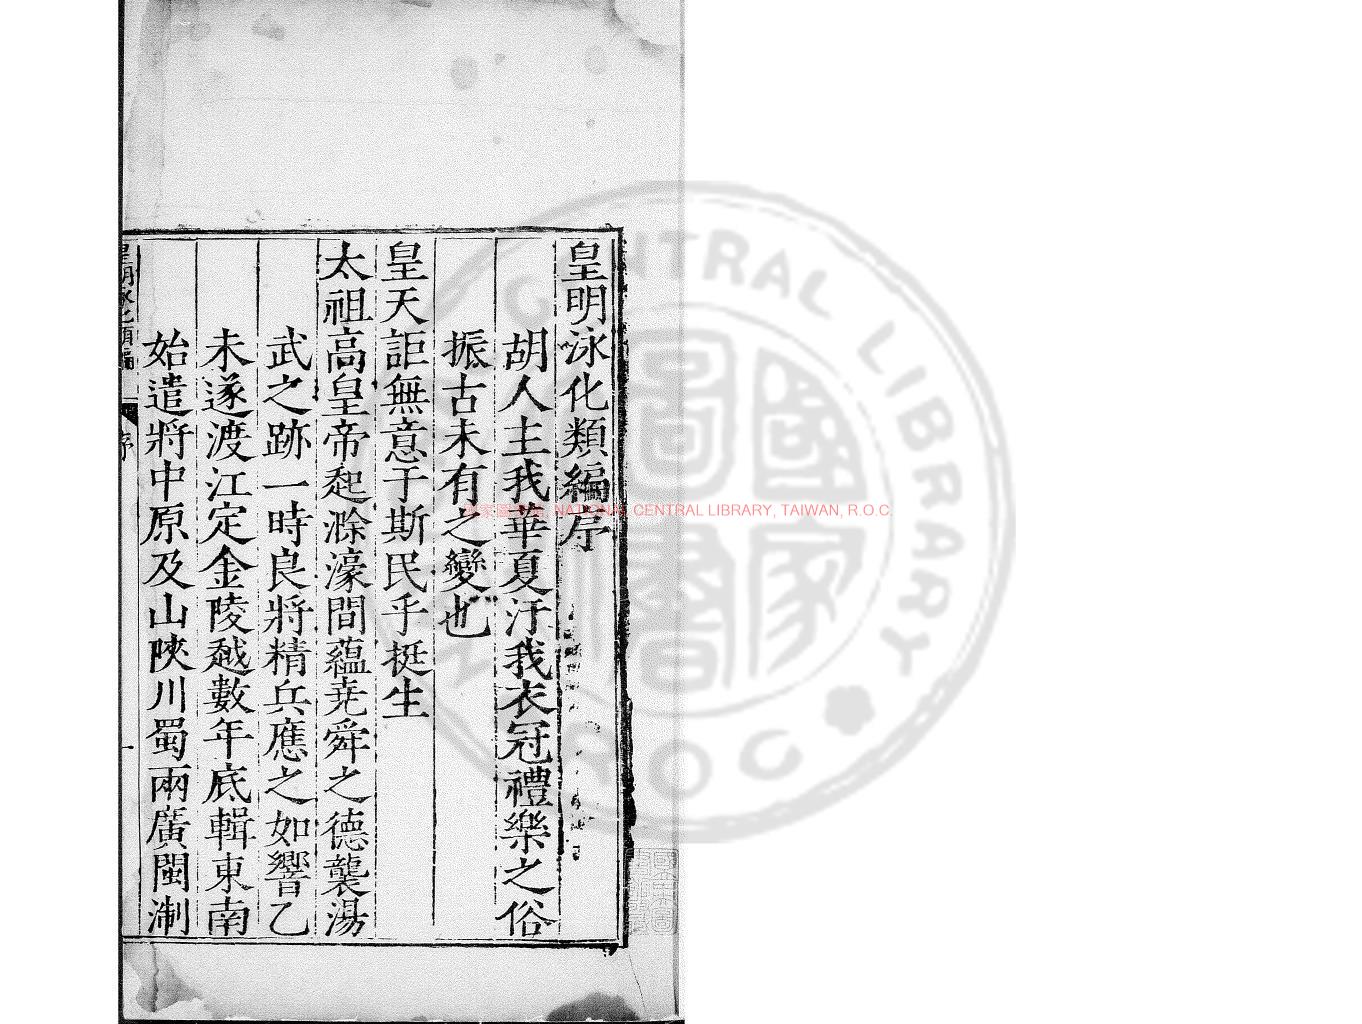 皇明泳化類編序
胡人主我華夏汙我衣冠禮樂之俗
振古未有之變也
皇天詎無意于斯民乎挺生
太祖高皇帝起滁濠間蘊堯舜之德襲湯
武之跡一時良將精兵應之如響乙
未遂渡江定金陵越數年底輯東南
始遣將中原及山陝川蜀兩廣閩淛
皇明泳化類編
序
一
國家圖書館 NATIONAL CENTRAL LIBRARY, TAIWAN, R.O.C
CENTRAL LIBRARY
R.O.C